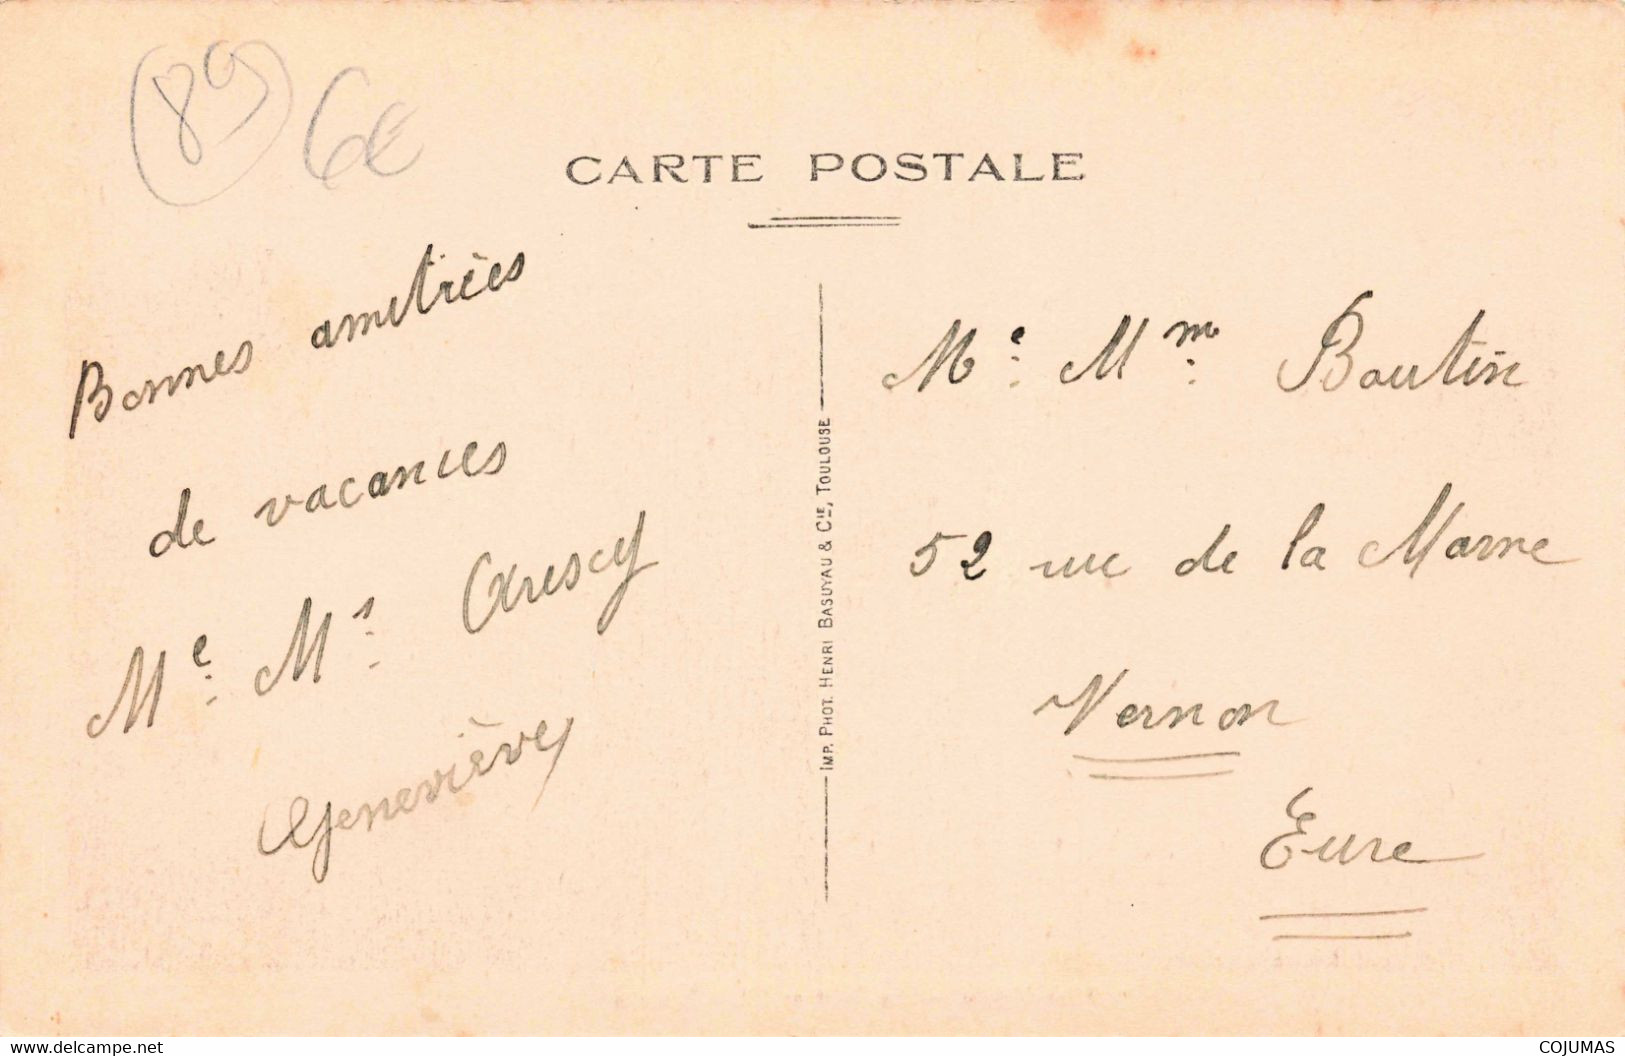 (89) 6€
CARTE POSTALE
Bonnes amitiées
de vacances
Me. Ms.
Geneviève
IMP. PHOT. HENRI BASUYAU & CIE, TOULOUSE
Me. Mm. Boutin
52 rue de la Marne
Vernon
Eure
www.delcampe.net
COJUMAS